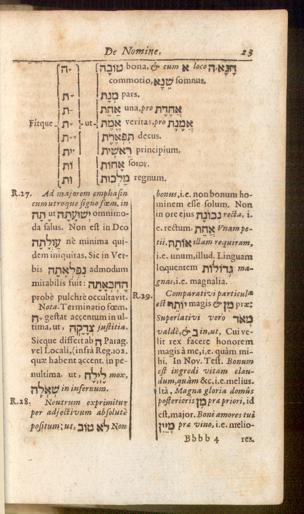 De Nomine. 23
־ה טוֹבָה bona, & cum א loco ה
commotio, שֵׁנָא somnus.
־ת מְנָת pars.
־ת אַחַת una, pro
Fitque ־ת ut אֱמֶת veritas, pro
־ת תִּפְאֶרֶת decus.
־ית רֵאשִׁית principium.
־וֹת אָחוֹת soror.
־וּת מַלְכוּת regnum.
R.27. Ad majorem emphasin
cum utroque signo fœm, in
תָה ut יְשׁוּעָתָה omnimo-
da salus. Non est in Deo
עַוְלָתָה nè minima qui-
dem iniquitas. Sic in Ver-
bis נִפְלְאָתָה admodum
mirabilis fuit:
probè pulchrè occultavit.
Nota. Terminatio fœm.
ה- gestat accentum in ul-
tima, ut, צְדָקָה justitia.
Sicque differt ab ה Parag.
vel Locali, (infra Reg. 102.
quæ habent accent. in pe-
nultima. ut, לַיְלָה nox,
שְׁאֹלָה in infernum.
R.28. Neutrum exprimitur
per adjectivum absolutè
positum; ut, לֹא טוֹב Non
bonus, i.e. non bonum ho-
minem esse solum. Non
in ore ejus נְכוֹנָה recta, i.
e. rectum. אַחַת Unam pe-
tii, אוֹתָהּ illam requiram,
i.e. unum, illud. Linguam
loquentem גְּדֹלוֹת ma-
gnas, i.e. magnalia.
R.29. Comparativi particulæ
est יוֹתֵר magis & מִן præ:
Superlativi verò מְאֹד
valdè, & ב in, ut, Cui ve-
lit rex facere honorem
magis à me, i.e. quàm mi-
hi. In Nov. Test. Bonum
est ingredi vitam clau-
dum, quàm &c, i.e. melius.
Ità, Magna gloria domûs
posterioris מִן præ priori, id
est, major. Boni amores tui
מִיַּיִן præ vino, i.e. melio-
Bbbb 4 res.